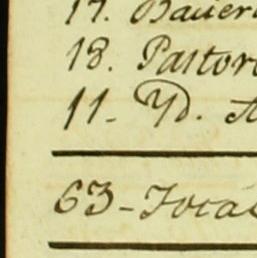 17. Bauer
18. Pastor
11. Yd.
63-Total